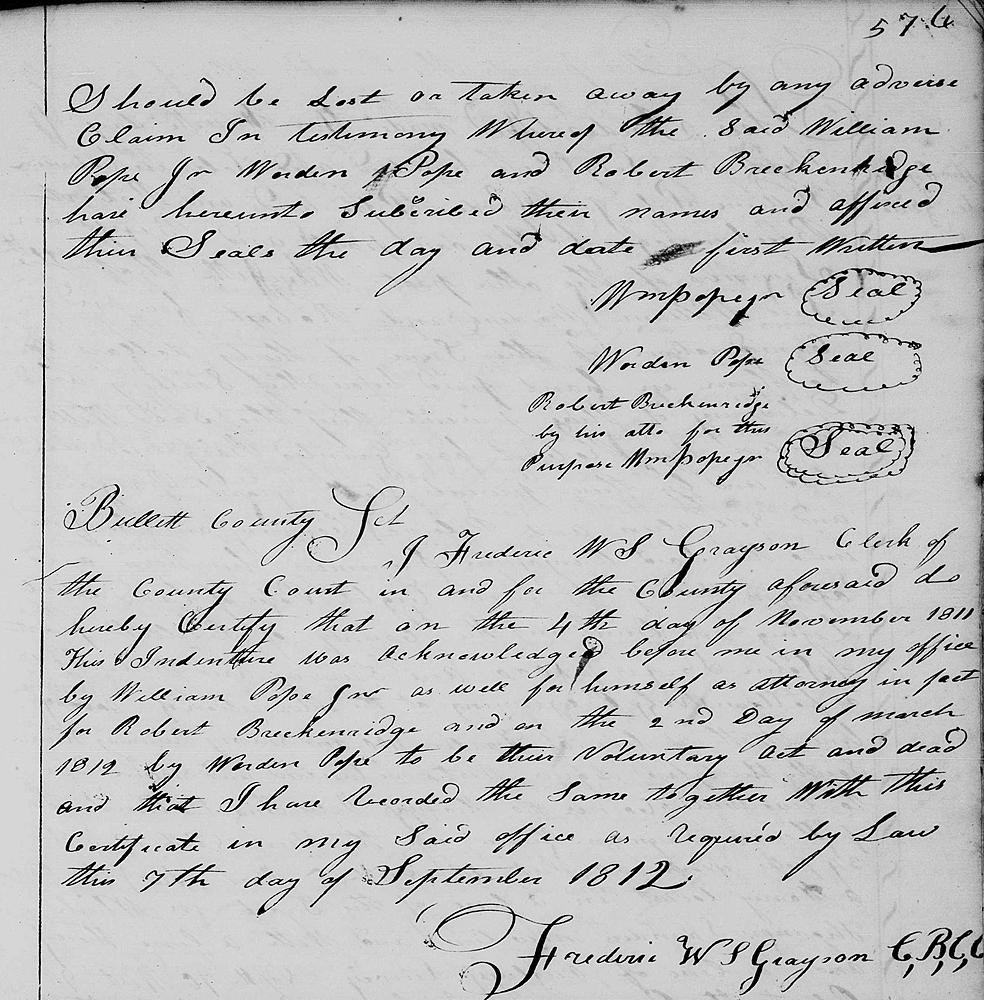 576
Should be Lost or taken away by any adverse
Claim In testimony Whereof the Said William
Pope Jr Worden Pope and Robert Breckenridge
have hereunto Subscribed their names and affixed
their Seals the day and date first Written
Wm Pope jr Seal
Worden Pope Seal
Robert Breckenridge
by his atto for this
Purpose Wm Pope jr Seal
Bullitt County Sct
I Frederic W S Grayson Clerk of
the County Court in and for the County aforesaid do
hereby Certify that on the 4th day of November 1811
this Indenture was Acknowledged before me in my office
by William Pope Jnr as well for himself as attorney in fact
for Robert Breckenridge and on the 2nd Day of march
1812 by Worden Pope to be their Voluntary act and dead
and that I have recorded the Same together With this
Certificate in my Said office as required by Law
this 7th day of September 1812.
Frederic W S Grayson C,B,C,C